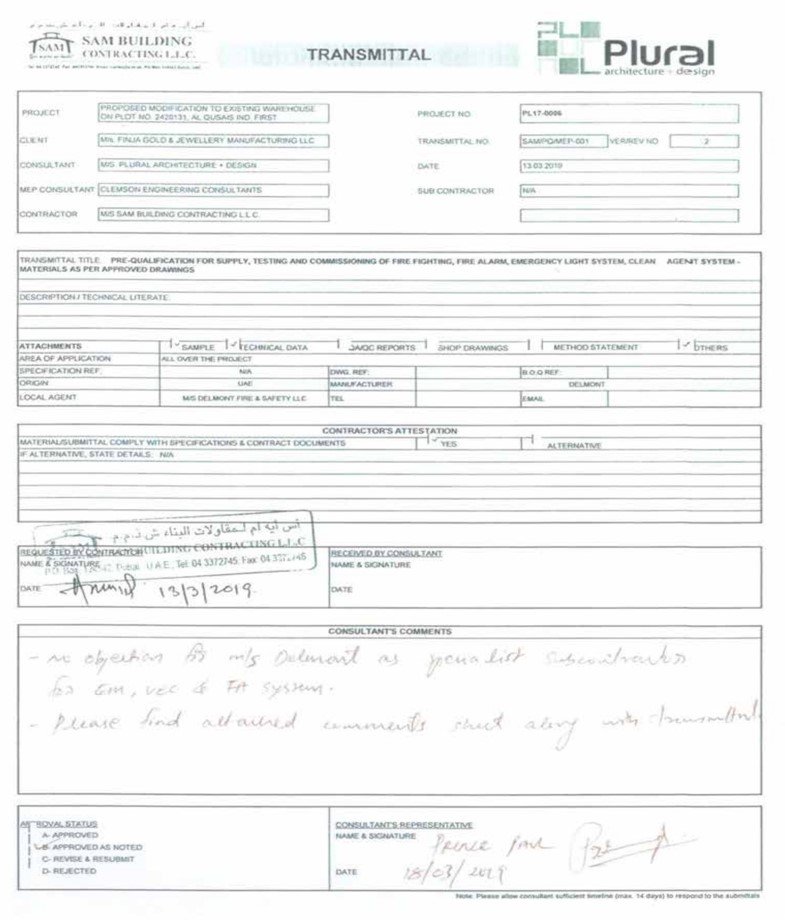 SAM
SAM BUILDING
CONTRACTING L.L.C.
TRANSMITTAL
Plural
architecture + design
PROJECT
PROPOSED MODIFICATION TO EXISTING WAREHOUSE
ON PLOT NO. 2420131, AL QUSAIS IND. FIRST
PROJECT NO.
PL17-0006
CLIENT
M/s. FINJA GOLD & JEWELLERY MANUFACTURING LLC
TRANSMITTAL NO.
SAM/PQ/MEP-001
VER/REV NO
2
CONSULTANT
M/S. PLURAL ARCHITECTURE + DESIGN
DATE
13.03.2019
MEP CONSULTANT
CLEMSON ENGINEERING CONSULTANTS
SUB CONTRACTOR
N/A
CONTRACTOR
M/S SAM BUILDING CONTRACTING L.L.C.
TRANSMITTAL TITLE: PRE-QUALIFICATION FOR SUPPLY, TESTING AND COMMISSIONING OF FIRE FIGHTING, FIRE ALARM, EMERGENCY LIGHT SYSTEM, CLEAN AGENT SYSTEM -
MATERIALS AS PER APPROVED DRAWINGS
DESCRIPTION / TECHNICAL LITERATE:
ATTACHMENTS SAMPLE TECHNICAL DATA QA/QC REPORTS SHOP DRAWINGS METHOD STATEMENT OTHERS
AREA OF APPLICATION ALL OVER THE PROJECT
SPECIFICATION REF. N/A DWG. REF: B.O.Q REF:
ORIGIN UAE MANUFACTURER DELMONT
LOCAL AGENT M/S DELMONT FIRE & SAFETY LLC TEL EMAIL
CONTRACTOR'S ATTESTATION
MATERIAL/SUBMITTAL COMPLY WITH SPECIFICATIONS & CONTRACT DOCUMENTS YES ALTERNATIVE
IF ALTERNATIVE, STATE DETAILS: N/A
أس أيه ام لمقاولات البناء ش.ذ.م.م
BUILDING CONTRACTING L.L.C
Dubai, U.A.E, Tel: 04 3372745, Fax: 04
REQUESTED BY CONTRACTOR
NAME & SIGNATURE
DATE 13/3/2019
RECEIVED BY CONSULTANT
NAME & SIGNATURE
DATE
CONSULTANT'S COMMENTS
- no objection for m/s Delmont as specialist subcontractor
for EM, & FA system.
- Please find attached comments sheet along with transmittal.
APPROVAL STATUS
A- APPROVED
B- APPROVED AS NOTED
C- REVISE & RESUBMIT
D- REJECTED
CONSULTANT'S REPRESENTATIVE
NAME & SIGNATURE Prince
DATE 18/03/2019
Note: Please allow consultant sufficient timeline (max. 14 days) to respond to the submittals